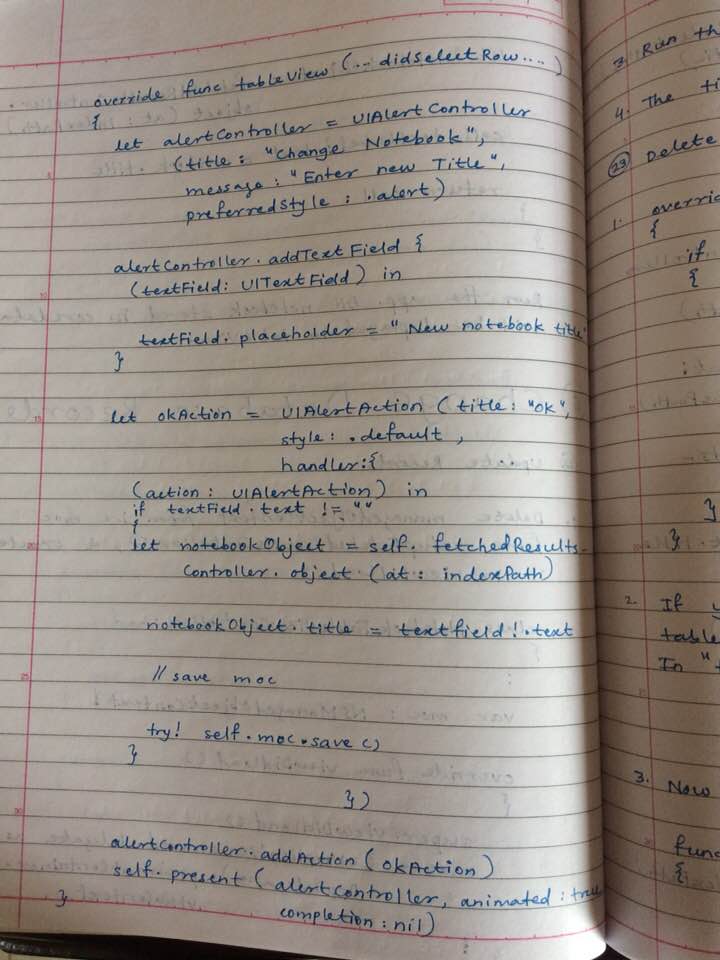 override func tableView (... didSelectRow....)
{
let alertController = UIAlertController
(title : "Change Notebook",
message : "Enter new Title",
preferredStyle : .alert)
alertController.addTextField {
(textField: UITextField) in
textField. placeholder = "New notebook title"
}
let okAction = UIAlertAction (title: "ok",
style: .default ,
handler:{
(action : UIAlertAction) in
if textField.text != ""
{
let notebookObject = self. fetchedResults-
Controller. object (at : indexPath)
notebookObject.title = textfield!.text
// save moc
try! self.moc.save ()
}
})
alertController.addAction (okAction)
self. present (alertController, animated : true
completion : nil)
}
3. Run th
4. The ti
(23) Delete
1. overrid
{
if
{
}
}
2. If
table
In "
3. Now
func
{